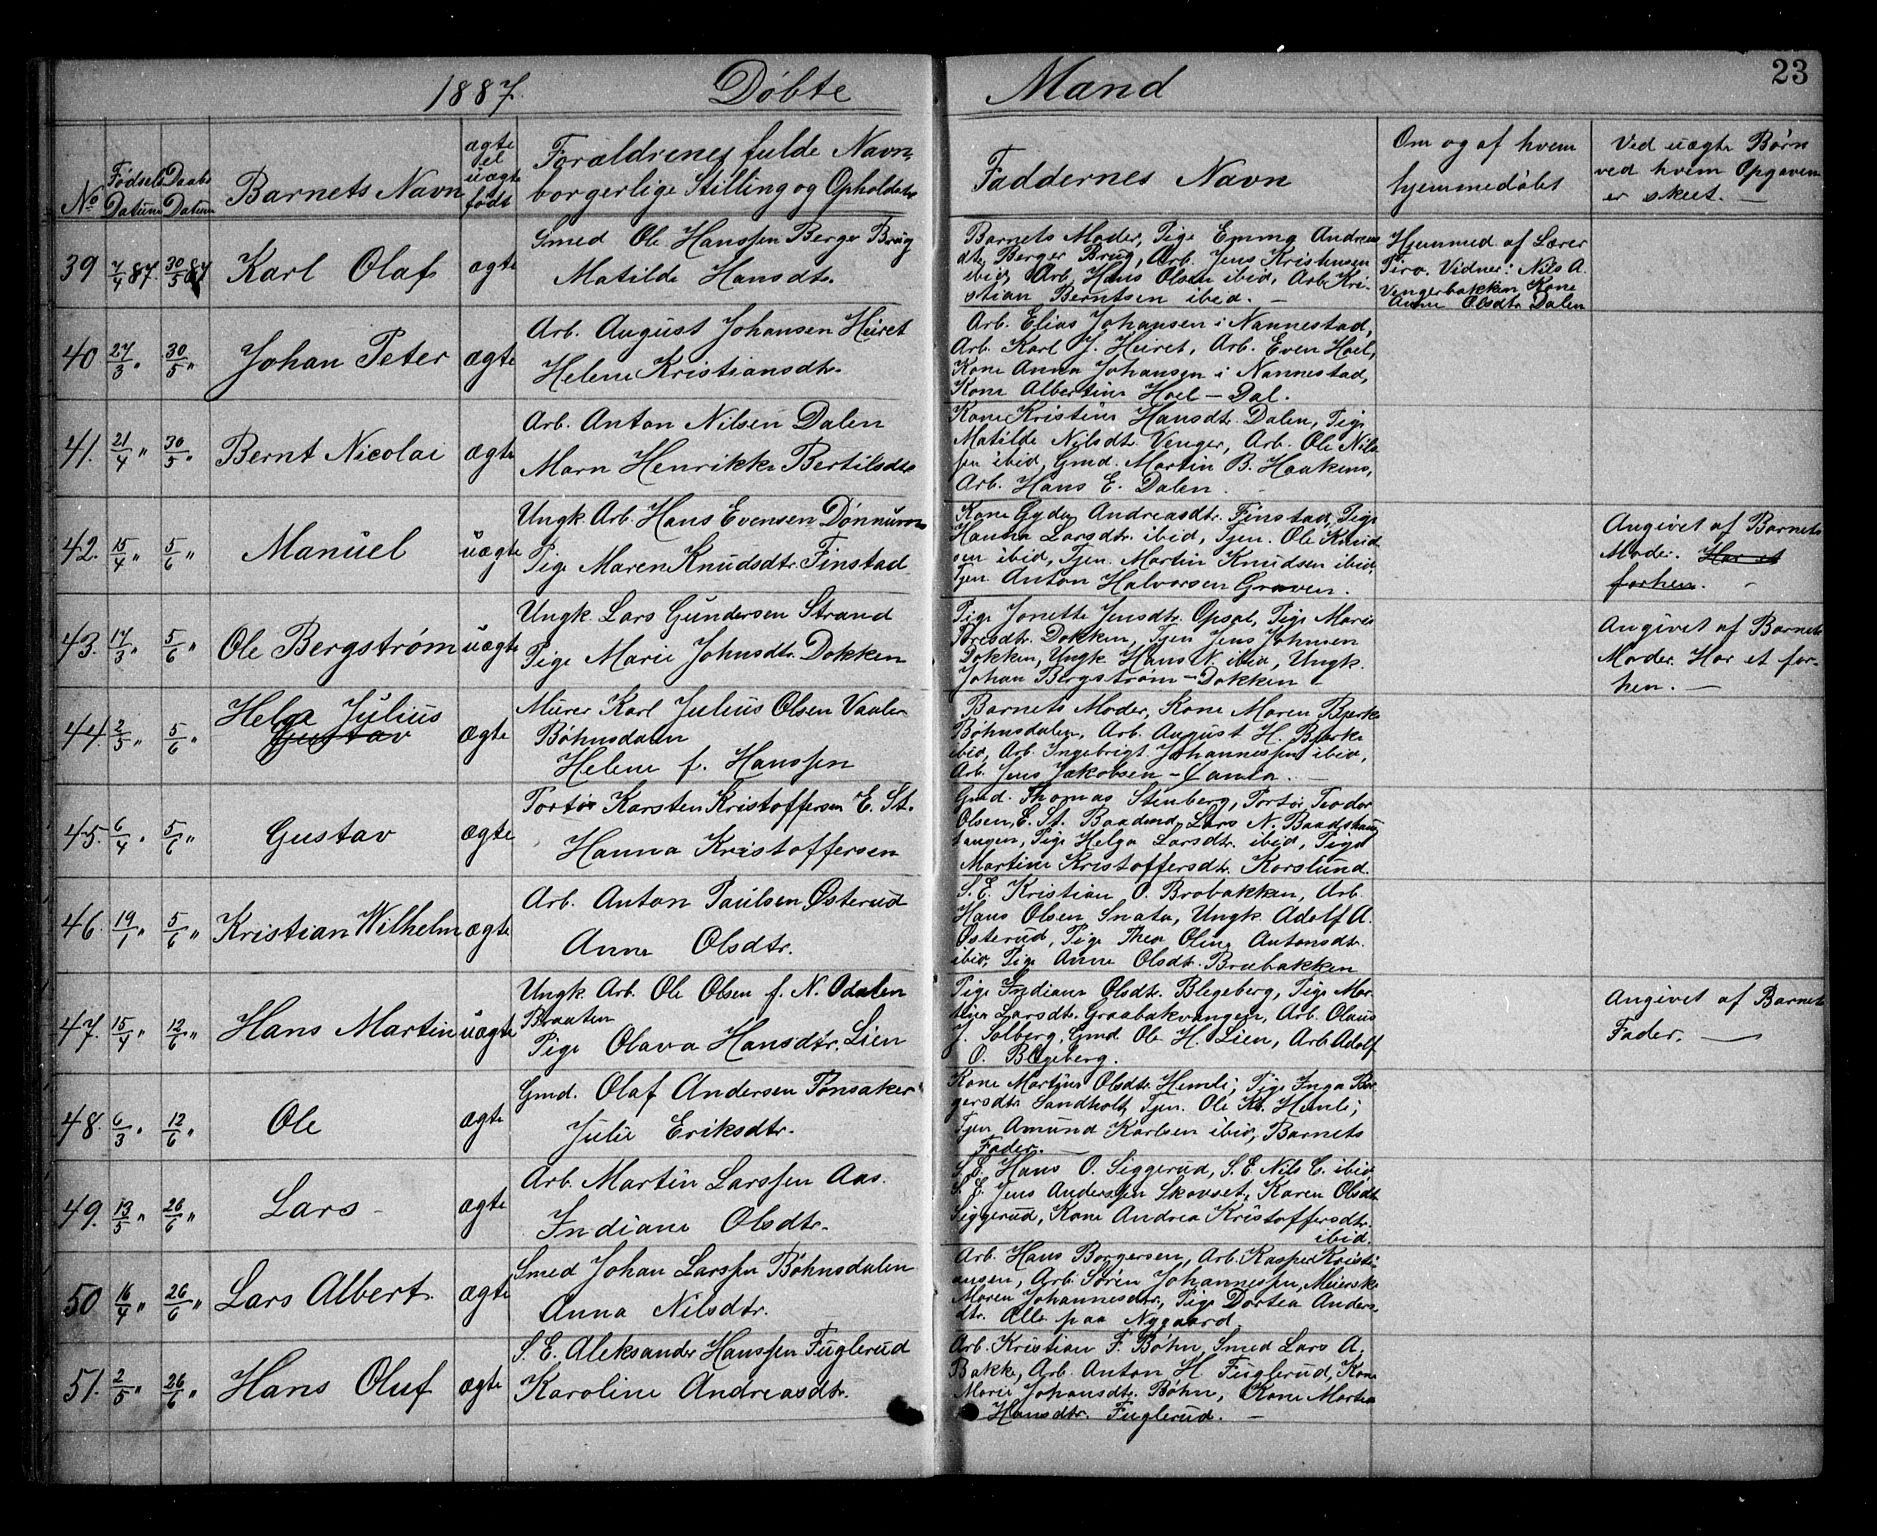 1887. Døbte Mand 23
No Fødsels Datum Daabs Datum Barnets Navn ægte el uægte født Forældrenes fulde Navn, borgerlige Stilling og Opholdsts
Faddernes Navn
Om og af hvem hjemmedøbt
Ved uægte Børn ved hvem Opgaven er skeet. —
39 7/4 87. 30/5 87 Karl Olaf ægte
Smed Ole Hanssen Berger Brug
Matilde Hansdtr.
Barnets Moder, Pige Emma Andreas
dtr. Berger Brug, Arb. Jens Kristensen
ibid, Arb. Hans Olsen ibid, Arb. Kri-
stian Berntsen ibid. —
Hjemmed af Lærer
Tiro. Vidner: Nils A.
Vengerbakken Kone
Anne Olsdtr Dalen
40 27/3 " 30/5 " Johan Peter ægte
Arb. August Johansen Heiret
Helene Kristiansdtr.
Arb. Elias Johansen i Nannestad,
Arb. Karl J. Heiret, Arb. Even Hoel,
Kone Anna Johansen i Nannestad,
Kone Albertine Hoel — Dal.
41. 21/4 " 30/5 " Bernt Nicolai ægte
Arb. Anton Nilsen Dalen
Marn Henrikke Bertilsdtr
Kone Kristine Hansdt. Dalen, Pige
Matilde Nilsdtr. Venger, Arb. Ole Nils
sen ibid, Gmd. Martin B. Haakens,
Arb. Hans E. Dalen.
42. 15/4 " 5/6 " Manuel uægte
Ungk. Arb. Hans Evensen Dønnum
Pige Maren Knudsdtr. Finstad
Kone Gyda Andreasdtr. Finstad, Pige
Hanna Larsdtr. ibid, Tjen. Ole Knud
sen ibid, Tjen. Martin Knudsen ibid,
Tjen. Anton Halvorsen Graven.
Angivet af Barnets
Moder. Har et
forhen. —
43. 17/3 " 5/6 " Ole Bergstrøm uægte
Ungk. Lars Gundersen Strand
Pige Marie Johnsdtr. Dokken
Pige Jonette Jensdtr. Opsal, Pige Marie
Dokken, Tjen Jens Johnsen
Dokken, Ungk Hans N. ibid, Ungk.
Johan Bergstrøm — Dokken
Angivet af Barnets
Moder. Har et for-
hen. —
44. 2/5 " 5/6 " Helge Julius
Gustav ægte
Murer Karl Julius Olsen Vaaler
Bøhnsdalen
Helene f. Hanssen
Barnets Moder, Kone Maren Bjerke
Bøhnsdalen, Arb. August H. Bjerke
ibid, Arb. Ingebrigt Johannessen ibid,
Arb. Jens Jakobsen —
45. 6/4 " 5/6 " Gustav ægte
Portør Karsten Kristoffersen E. St.
Hanna Kristoffersen
Gmd. Thomas Stenberg, Portør Teodor
Olsen, E. St. Baadmd. Lars N. Baadshaug
tangen, Pige Helga Larsdtr. ibid, Pige
Martine Kristoffersdtr. Korslund.
46. 19/1 " 5/6 " Kristian Wilhelm ægte
Arb. Anton Paulsen Østerud
Anne Olsdtr.
S. E. Kristian O. Brobakken, Arb.
Hans Olsen Snata, Ungk. Adolf A.
Østerud, Pige Thea Oline Antonsdtr.
ibid, Pige Anne Olsdtr. Brobakken
47. 15/4 " 12/6 " Hans Martin uægte
Ungk. Arb. Ole Olsen f. N. Odalen
Braaten
Pige Olava Hansdtr. Lien
Pige Indiane Olsdtr. Blegeberg, Pige Mar-
tine Larsdtr. Graabakvangen, Arb. Olaus
J. Solberg, Gmd Ole H. Lien, Arb Adolf
O. Blegeberg.
Angivet af Barnets
Fader. —
48. 6/3 " 12/6 " Ole ægte
Gmd. Olaf Andersen Tonsaker
Julie Eriksdtr.
Kone Martine Olsdtr. Hemli; Pige Inga Bor-
gersdtr. Sandholt, Tjen. Ole K. Hemli;
Tjen Amund Karlsen ibid, Barnets
Fader. —
49. 13/5 " 26/6 " Lars ægte
Arb. Martin Larssen Aas.
Indiane Olsdtr.
S. E. Hans O. Siggerud, S. E. Nils C. ibid,
S. E. Jens Anderssen Skovset, Karen Olsdtr.
Siggerud, Kone Andrea Kristoffersdtr.
ibid.
50 16/4 " 26/6 " Lars Albert. ægte
Smed Johan Larssen Bøhnsdalen
Anna Nilsdtr.
Arb. Hans Borgersen, Arb. Kasper Kristi-
ansen, Arb. Søren Johannessen, Meierske
Maren Johannesdtr., Pige Dortea Anders-
dtr. Alle paa Nygaard.
51. 2/5 " 26/6 " Hans Oluf ægte
S. E. Aleksander Hanssen Fuglerud
Karoline Andreasdtr.
Arb. Kristian F. Bøhn, Smed Lars A.
Bakke, Arb. Anton H. Fuglerud, Kone
Marie Johansdtr. Bøhn, Kone Martea
Hansdtr. Fuglerud. —